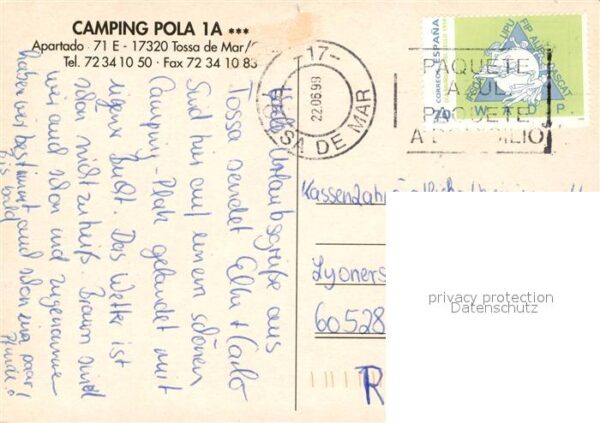 CAMPING POLA 1A ***
Apartado 71 E - 17320 Tossa de Mar/
Tel. 72 34 10 50 · Fax 72 34 10 83
Urlaubsgrüße aus
Tossa sendet Elke + Carlo
Sind hier auf einem schönen
Camping-Platz gelandet mit
Das Wetter ist
nicht zu heiß. Braun sind
wir auch schon und zugenommen
haben wir bestimmt auch schon ein paar
Pfunde!
Bis bald
-17-
22.06.99
SA DE MAR
PAQUETE
AZUL
PAQUETE
A DOMICILIO
CORREOS ESPAÑA
70
UPU FIP
WADP
Lyoners
60528
R
privacy protection
Datenschutz